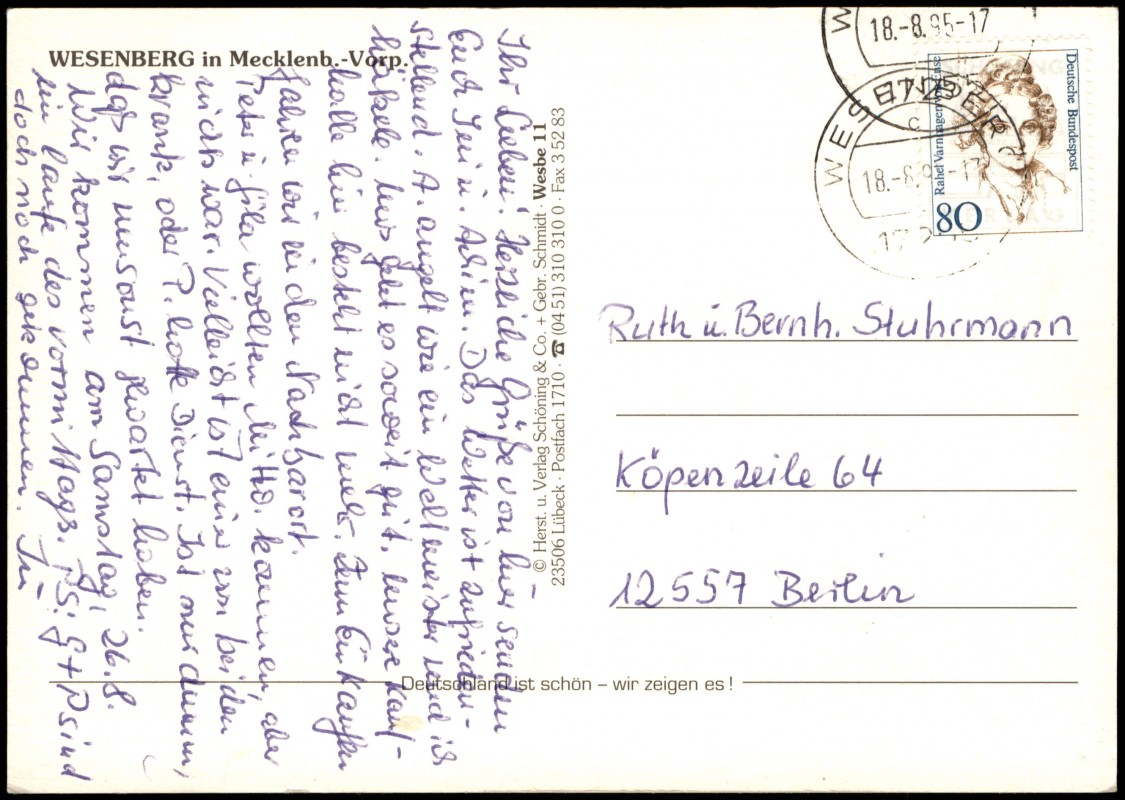 WESENBERG in Mecklenb.-Vorp.
Ihr Lieben! Herzliche Grüße von hier senden
Euch Jni u. Achim. Das Wetter ist zufrieden-
stellend. A. angelt wie ein Weltmeister und ich
häkele. Uns geht es soweit gut. Unsere Kauf-
halle hier besteht nicht mehr. Zum Einkaufen
fahren wir in den Nachbarort.
Peter u. Gila wollten Mittw. kommen, aber
nichts war. Vielleicht ist einer von beiden
krank, oder P. hatte Dienst. Ist nur dumm,
daß wir umsonst gewartet haben.
Wir kommen am Samstag, 26.8.
im laufe des vormittags. PS: G + P sind
doch noch gekommen.
© Herst. u. Verlag Schöning & Co. + Gebr. Schmidt · Wesbe 11
23506 Lübeck · Postfach 1710 · ☎ (04 51) 310 310 0 · Fax 3 52 83
Deutschland ist schön – wir zeigen es !
18.-8.95-17
WESENBERG
c
18.-8.9 -17
Deutsche Bundespost
Rahel Varnhagen von Ense
80
Ruth u. Bernh. Stuhrmann
Köpenzeile 64
12557 Berlin